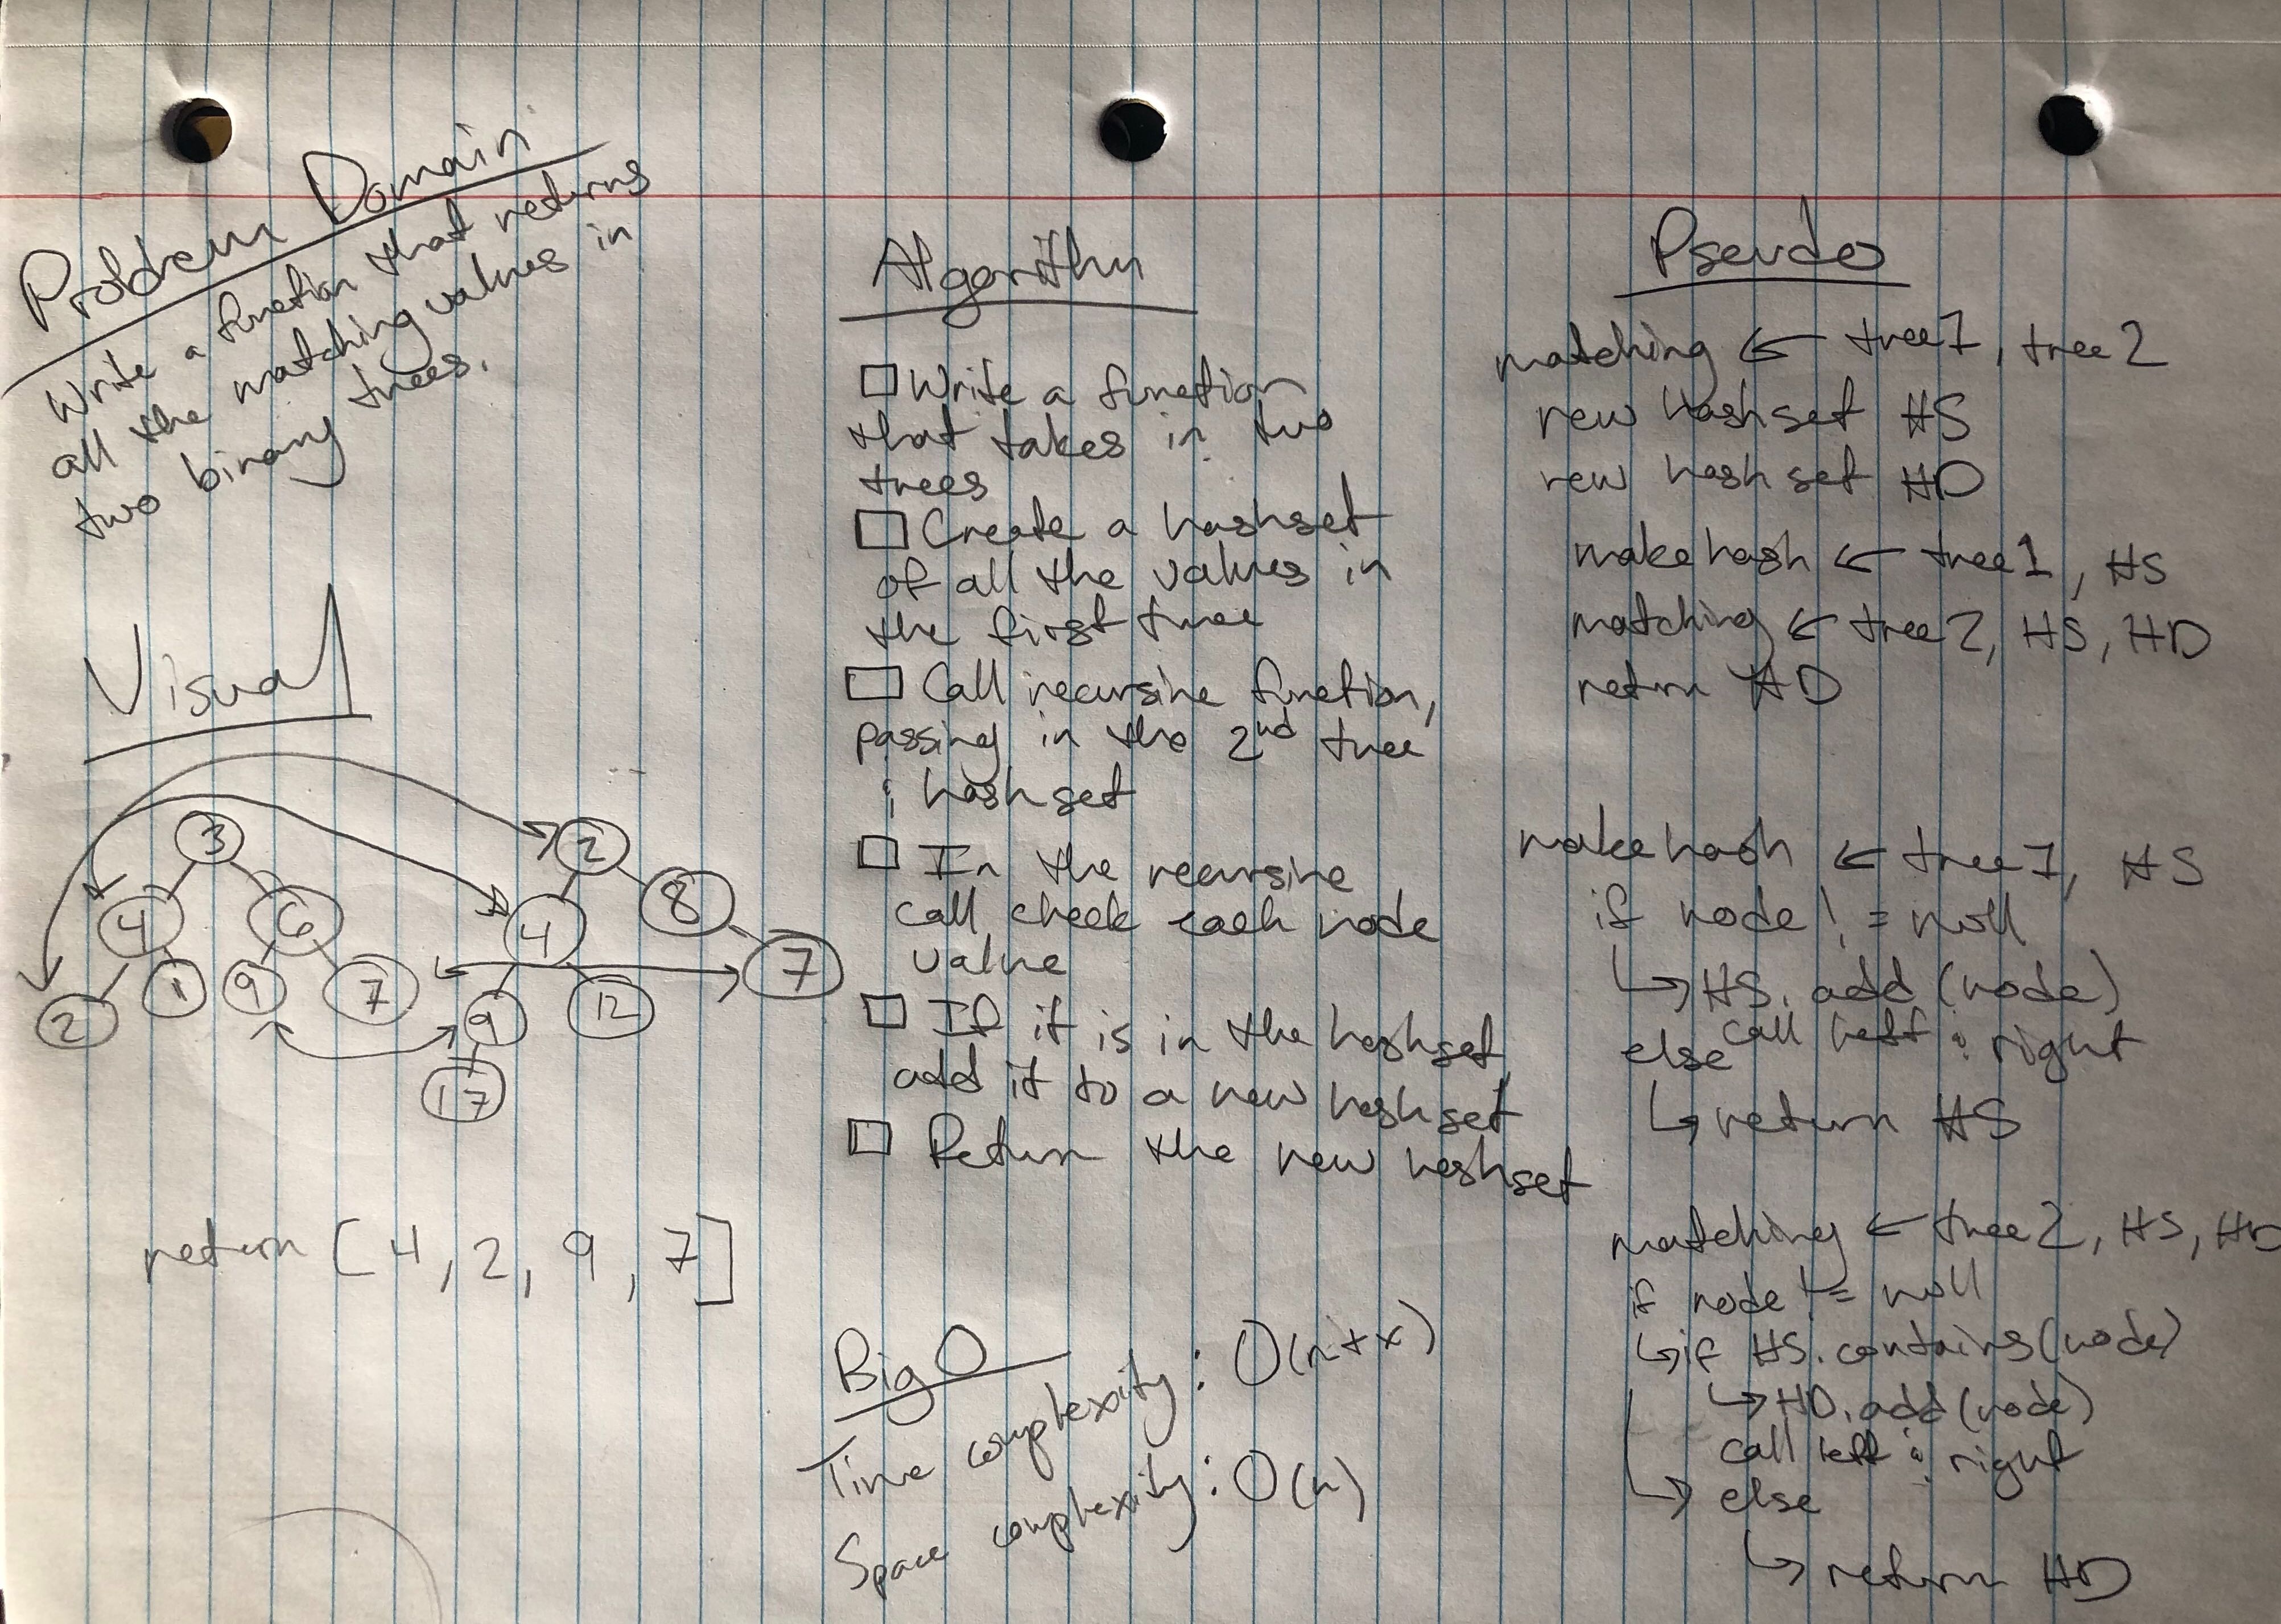 Problem Domain
Write a function that returns
all the matching values in
two binary trees.
Visual
3
4
6
2
1
9
7
2
4
8
9
12
7
17
return [4, 2, 9, 7]
Algorithm
Write a function
that takes in two
trees
Create a hashset
of all the values in
the first tree
Call recursive function,
passing in the 2nd tree
& hashset
In the recursive
call, check each node
value
If it is in the hashset,
add it to a new hashset
Return the new hashset
Big O
Time complexity: O(n+x)
Space complexity: O(n)
Pseudo
matching ← tree1, tree2
new hashset HS
new hashset HD
makehash ← tree1, HS
matching ← tree2, HS, HD
return HD
makehash ← tree1, HS
if node != null
↳ HS.add(node)
call left & right
else
↳ return HS
matching ← tree2, HS, HD
if node != null
↳ if HS.contains(node)
↳ HD.add(node)
call left & right
↳ else
↳ return HD